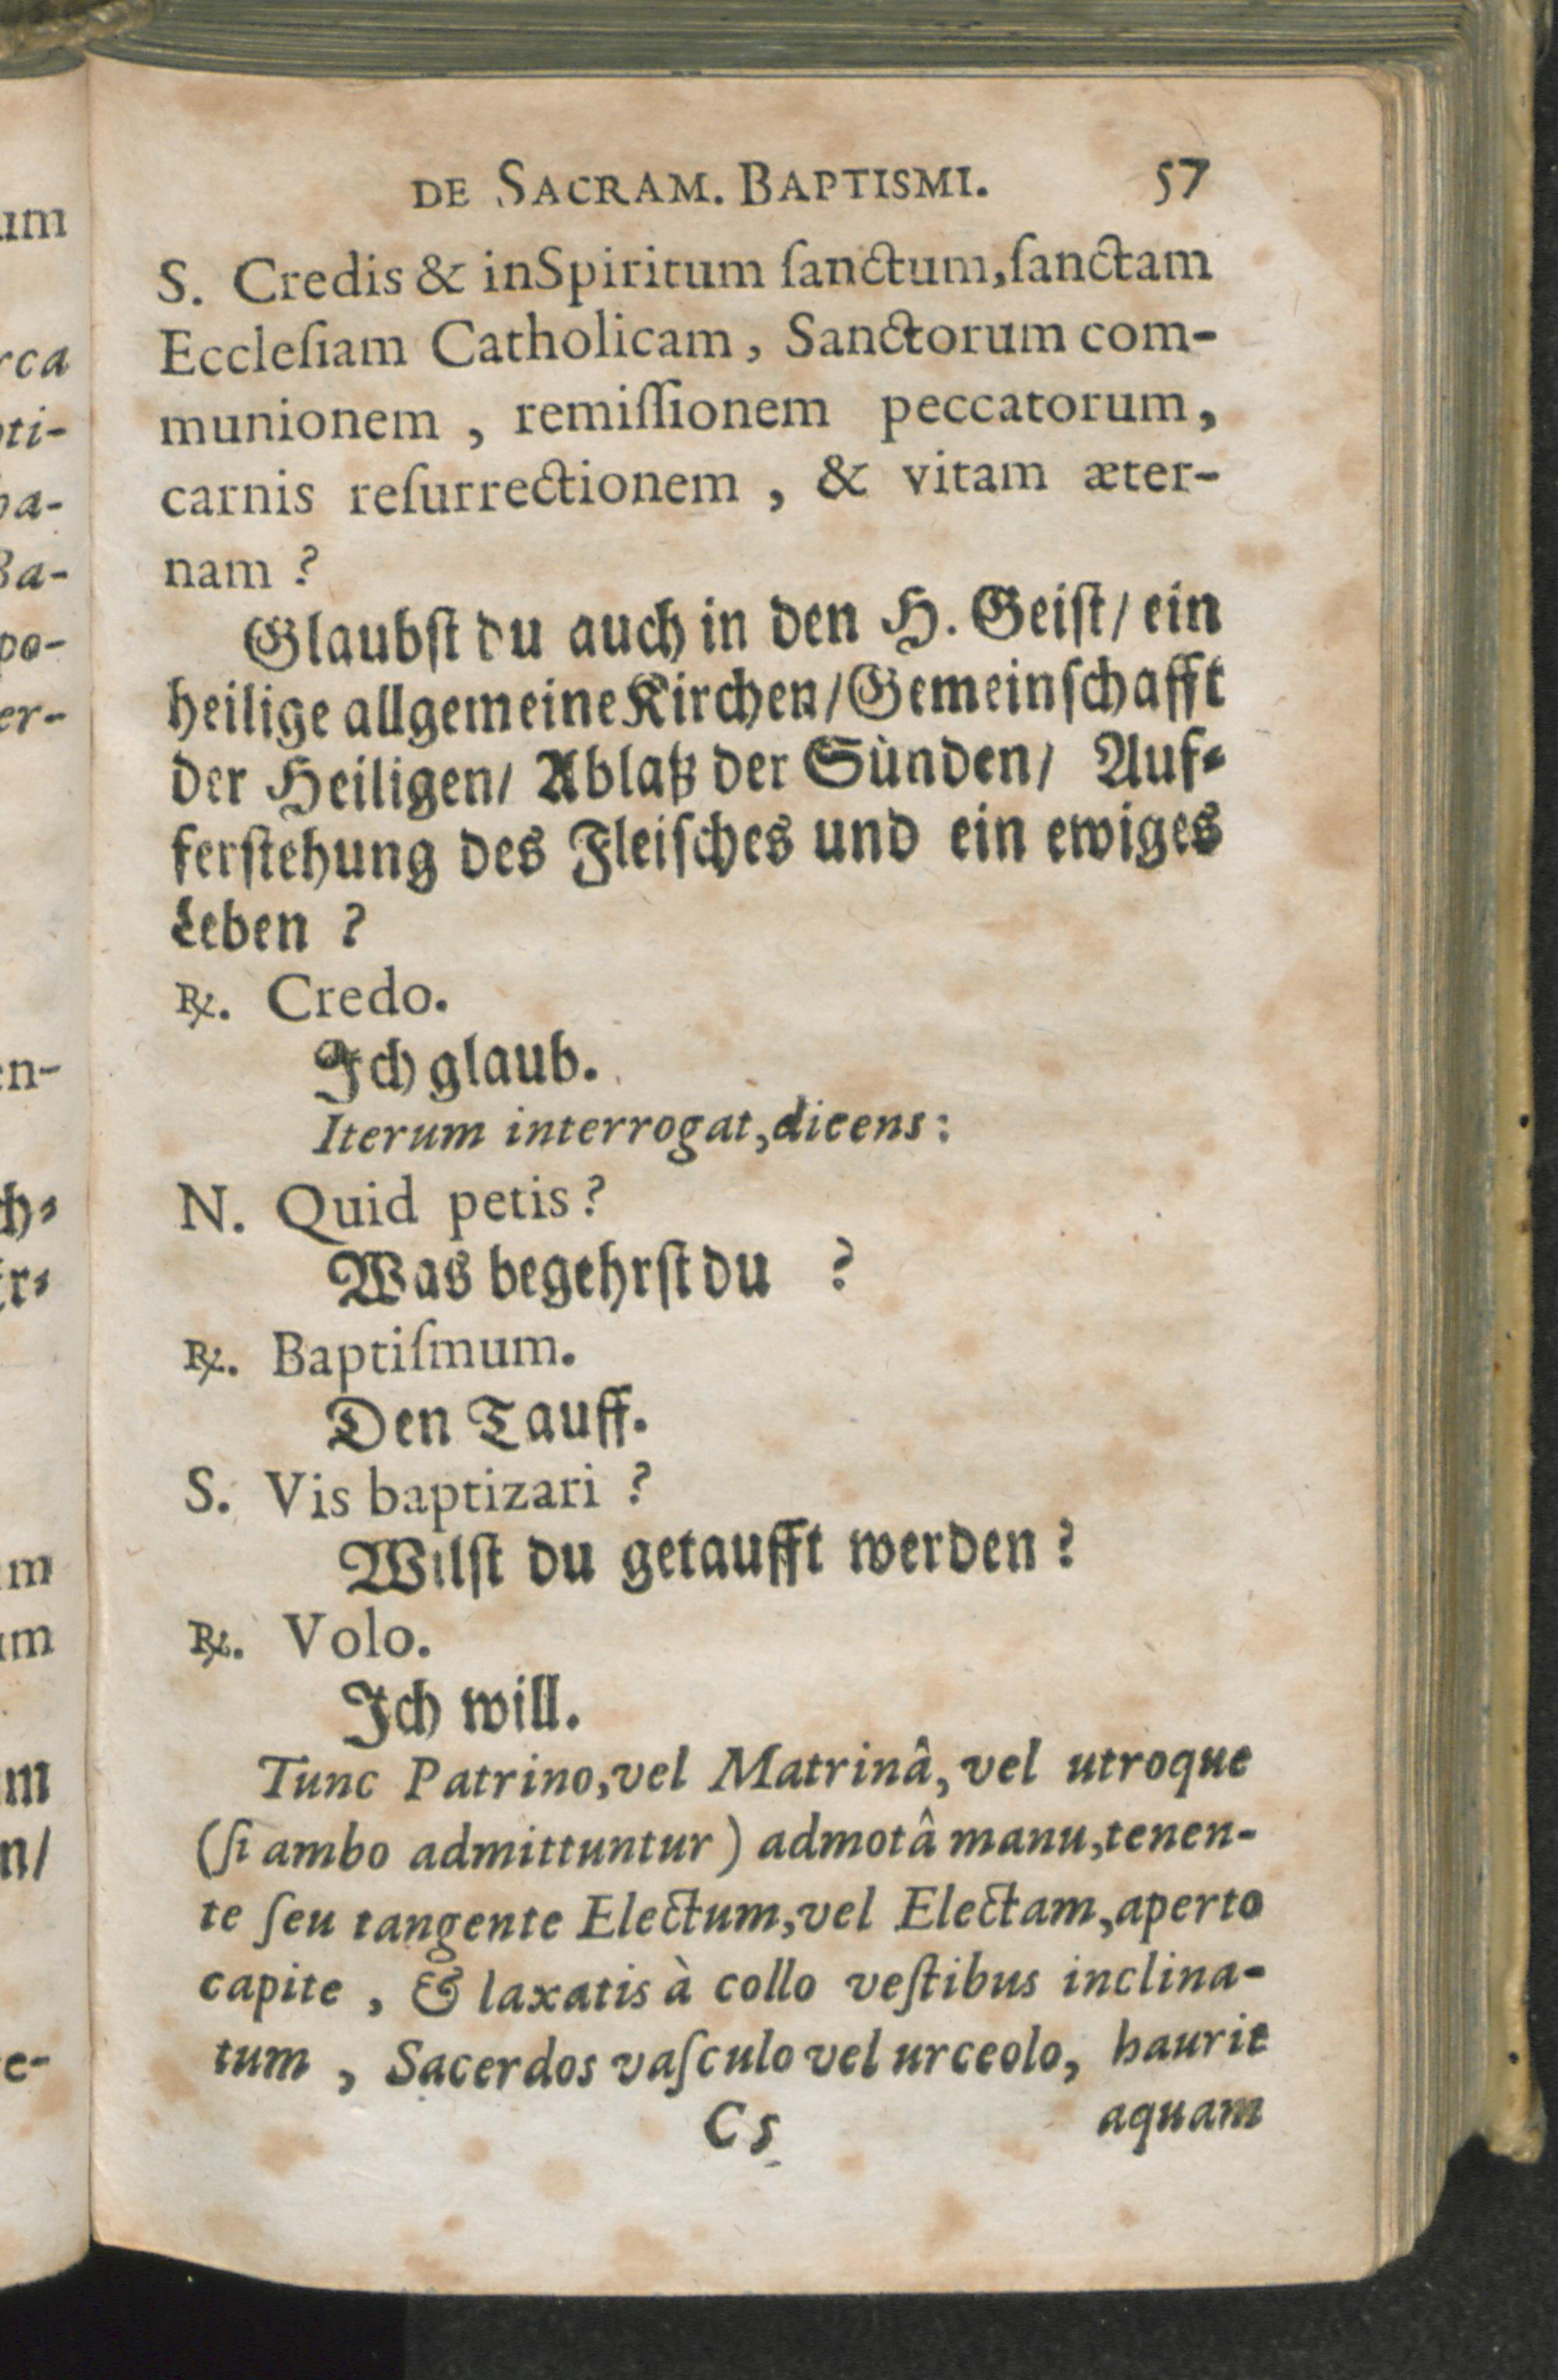 DE SACRAM. BAPTISMI. 57
S. Credis & inSpiritum ſanctum, ſanctam
Eccleſiam Catholicam, Sanctorum com-
munionem, remiſſionem peccatorum,
carnis reſurrectionem, & vitam æter-
nam?
Glaubſt du auch in den H. Geiſt/ ein
heilige allgemeine Kirchen/ Gemeinſchafft
der Heiligen/ Ablaß der Sünden/ Auf-
ferſtehung des Fleiſches und ein ewiges
Leben?
℞. Credo.
Ich glaub.
Iterum interrogat, dicens:
N. Quid petis?
Was begehrſt du?
℞. Baptiſmum.
Den Tauff.
S. Vis baptizari?
Wilſt du getaufft werden?
℞. Volo.
Ich will.
Tunc Patrino, vel Matrinâ, vel utroque
(ſi ambo admittuntur) admotâ manu, tenen-
te ſeu tangente Electum, vel Electam, aperto
capite, & laxatis à collo veſtibus inclina-
tum, Sacerdos vaſculo vel urceolo, haurit
C5 aquam